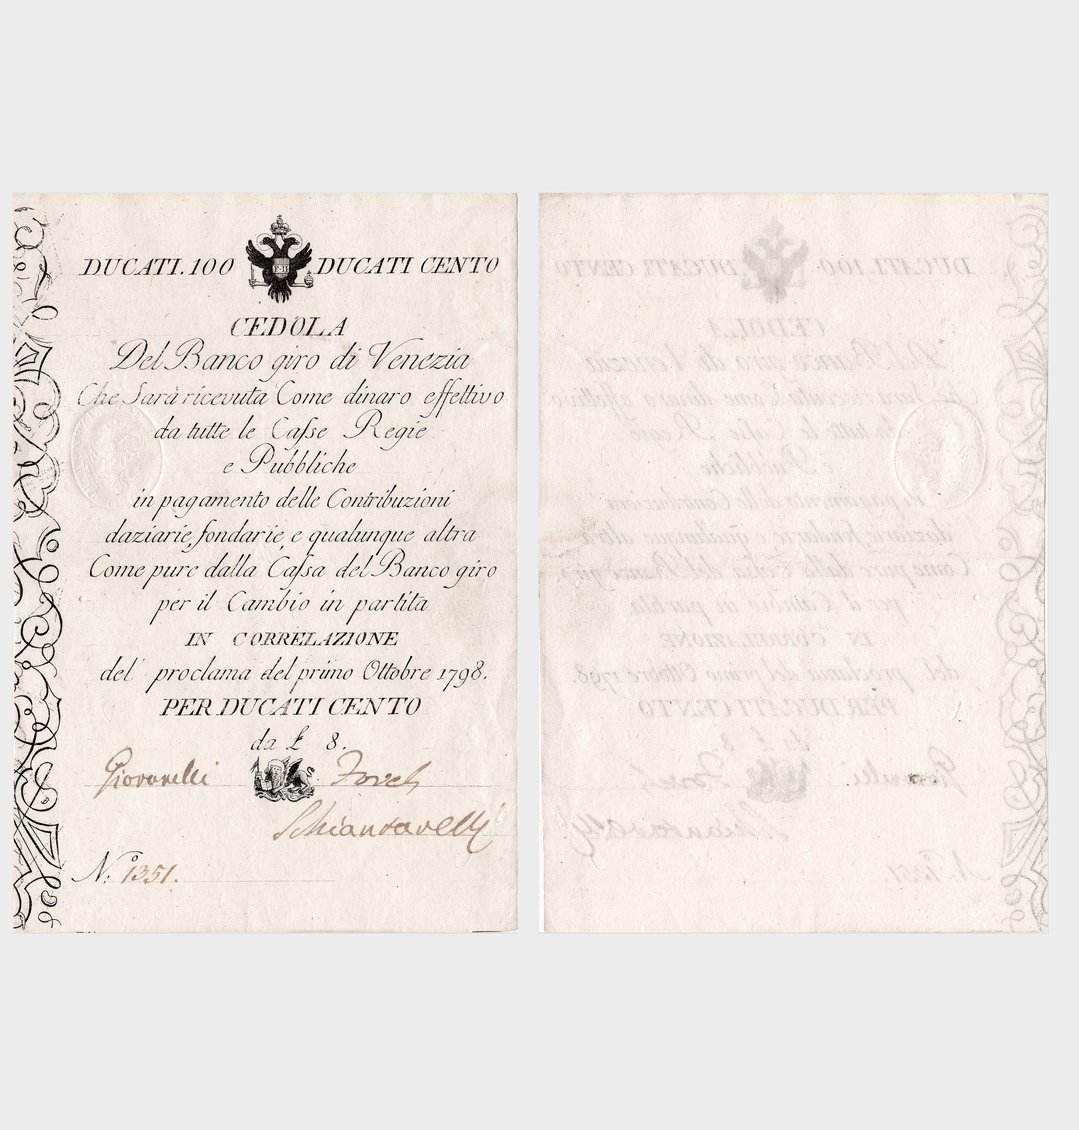 DUCATI.100 F·II DUCATI CENTO
CEDOLA
Del Banco giro di Venezia
Che Sarà ricevuta Come dinaro effettivo
da tutte le Casse Regie
e Pubbliche
in pagamento delle Contribuzioni
daziarie, fondarie, e qualunque altra
Come pure dalla Cassa del Banco giro
per il Cambio in partita
IN CORRELAZIONE
del proclama del primo Ottobre 1798.
PER DUCATI CENTO
da £ 8.
Giovanelli
Schiantarelli
N.º 1351.